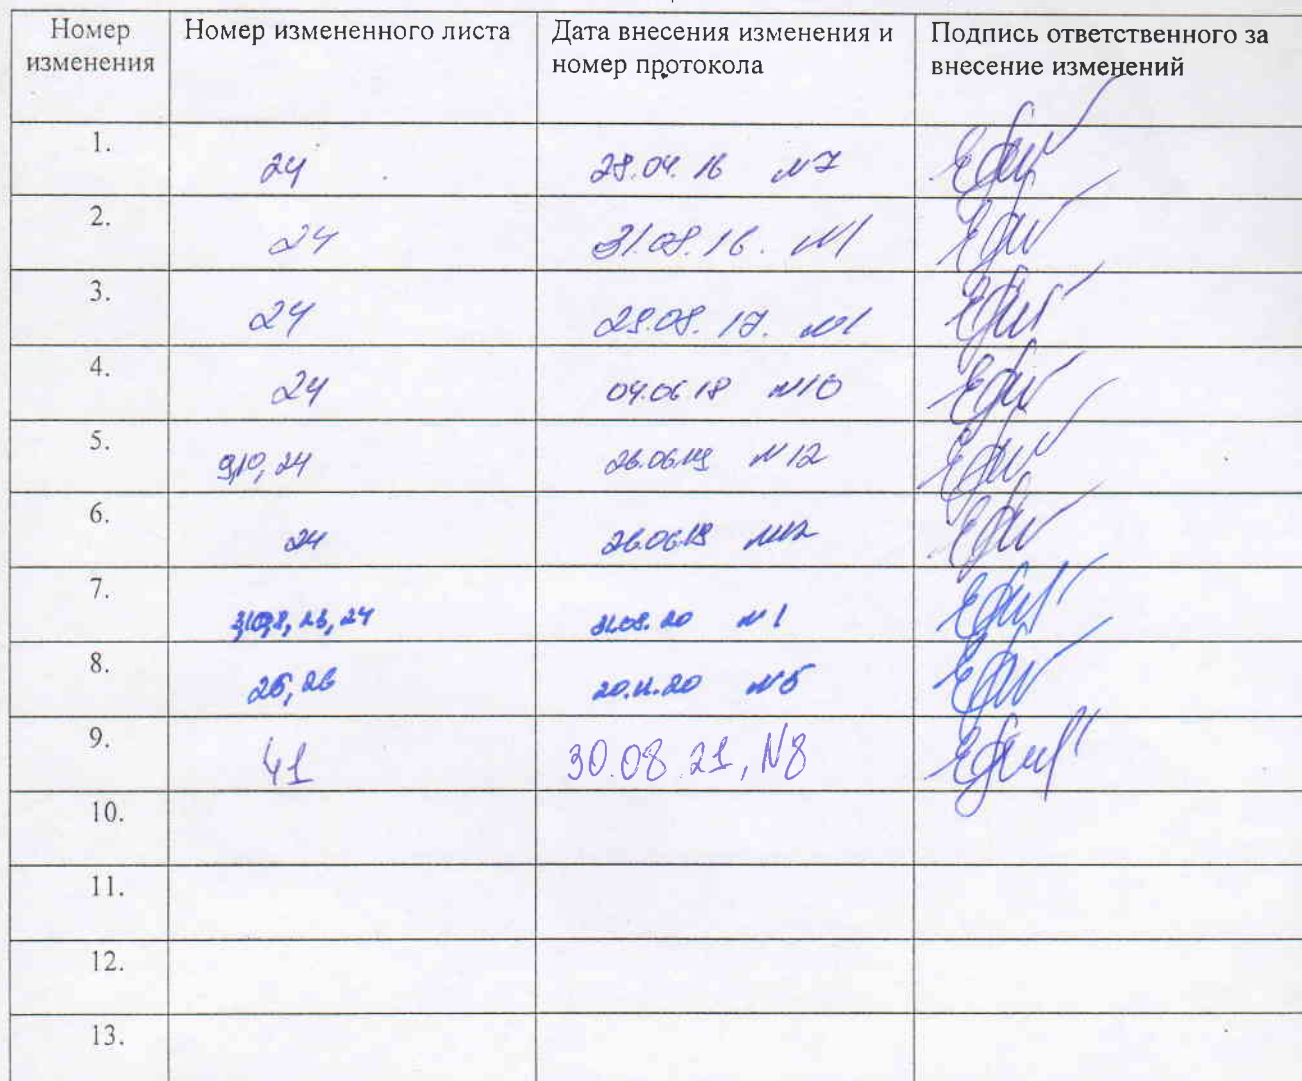 Номер изменения | Номер измененного листа | Дата внесения изменения и номер протокола | Подпись ответственного за внесение изменений
1. | 24 | 28.04.16 №7
2. | 24 | 31.08.16. №1
3. | 24 | 29.08.17. №1
4. | 24 | 04.06 18 №10
5. | 9,10, 24 | 26.06.19 №12
6. | 24 | 26.06.19 №12
7. | 23, 24 | 31.08.20 №1
8. | 25, 26 | 20.11.20 №5
9. | 41 | 30.08.21, №8
10.
11.
12.
13.